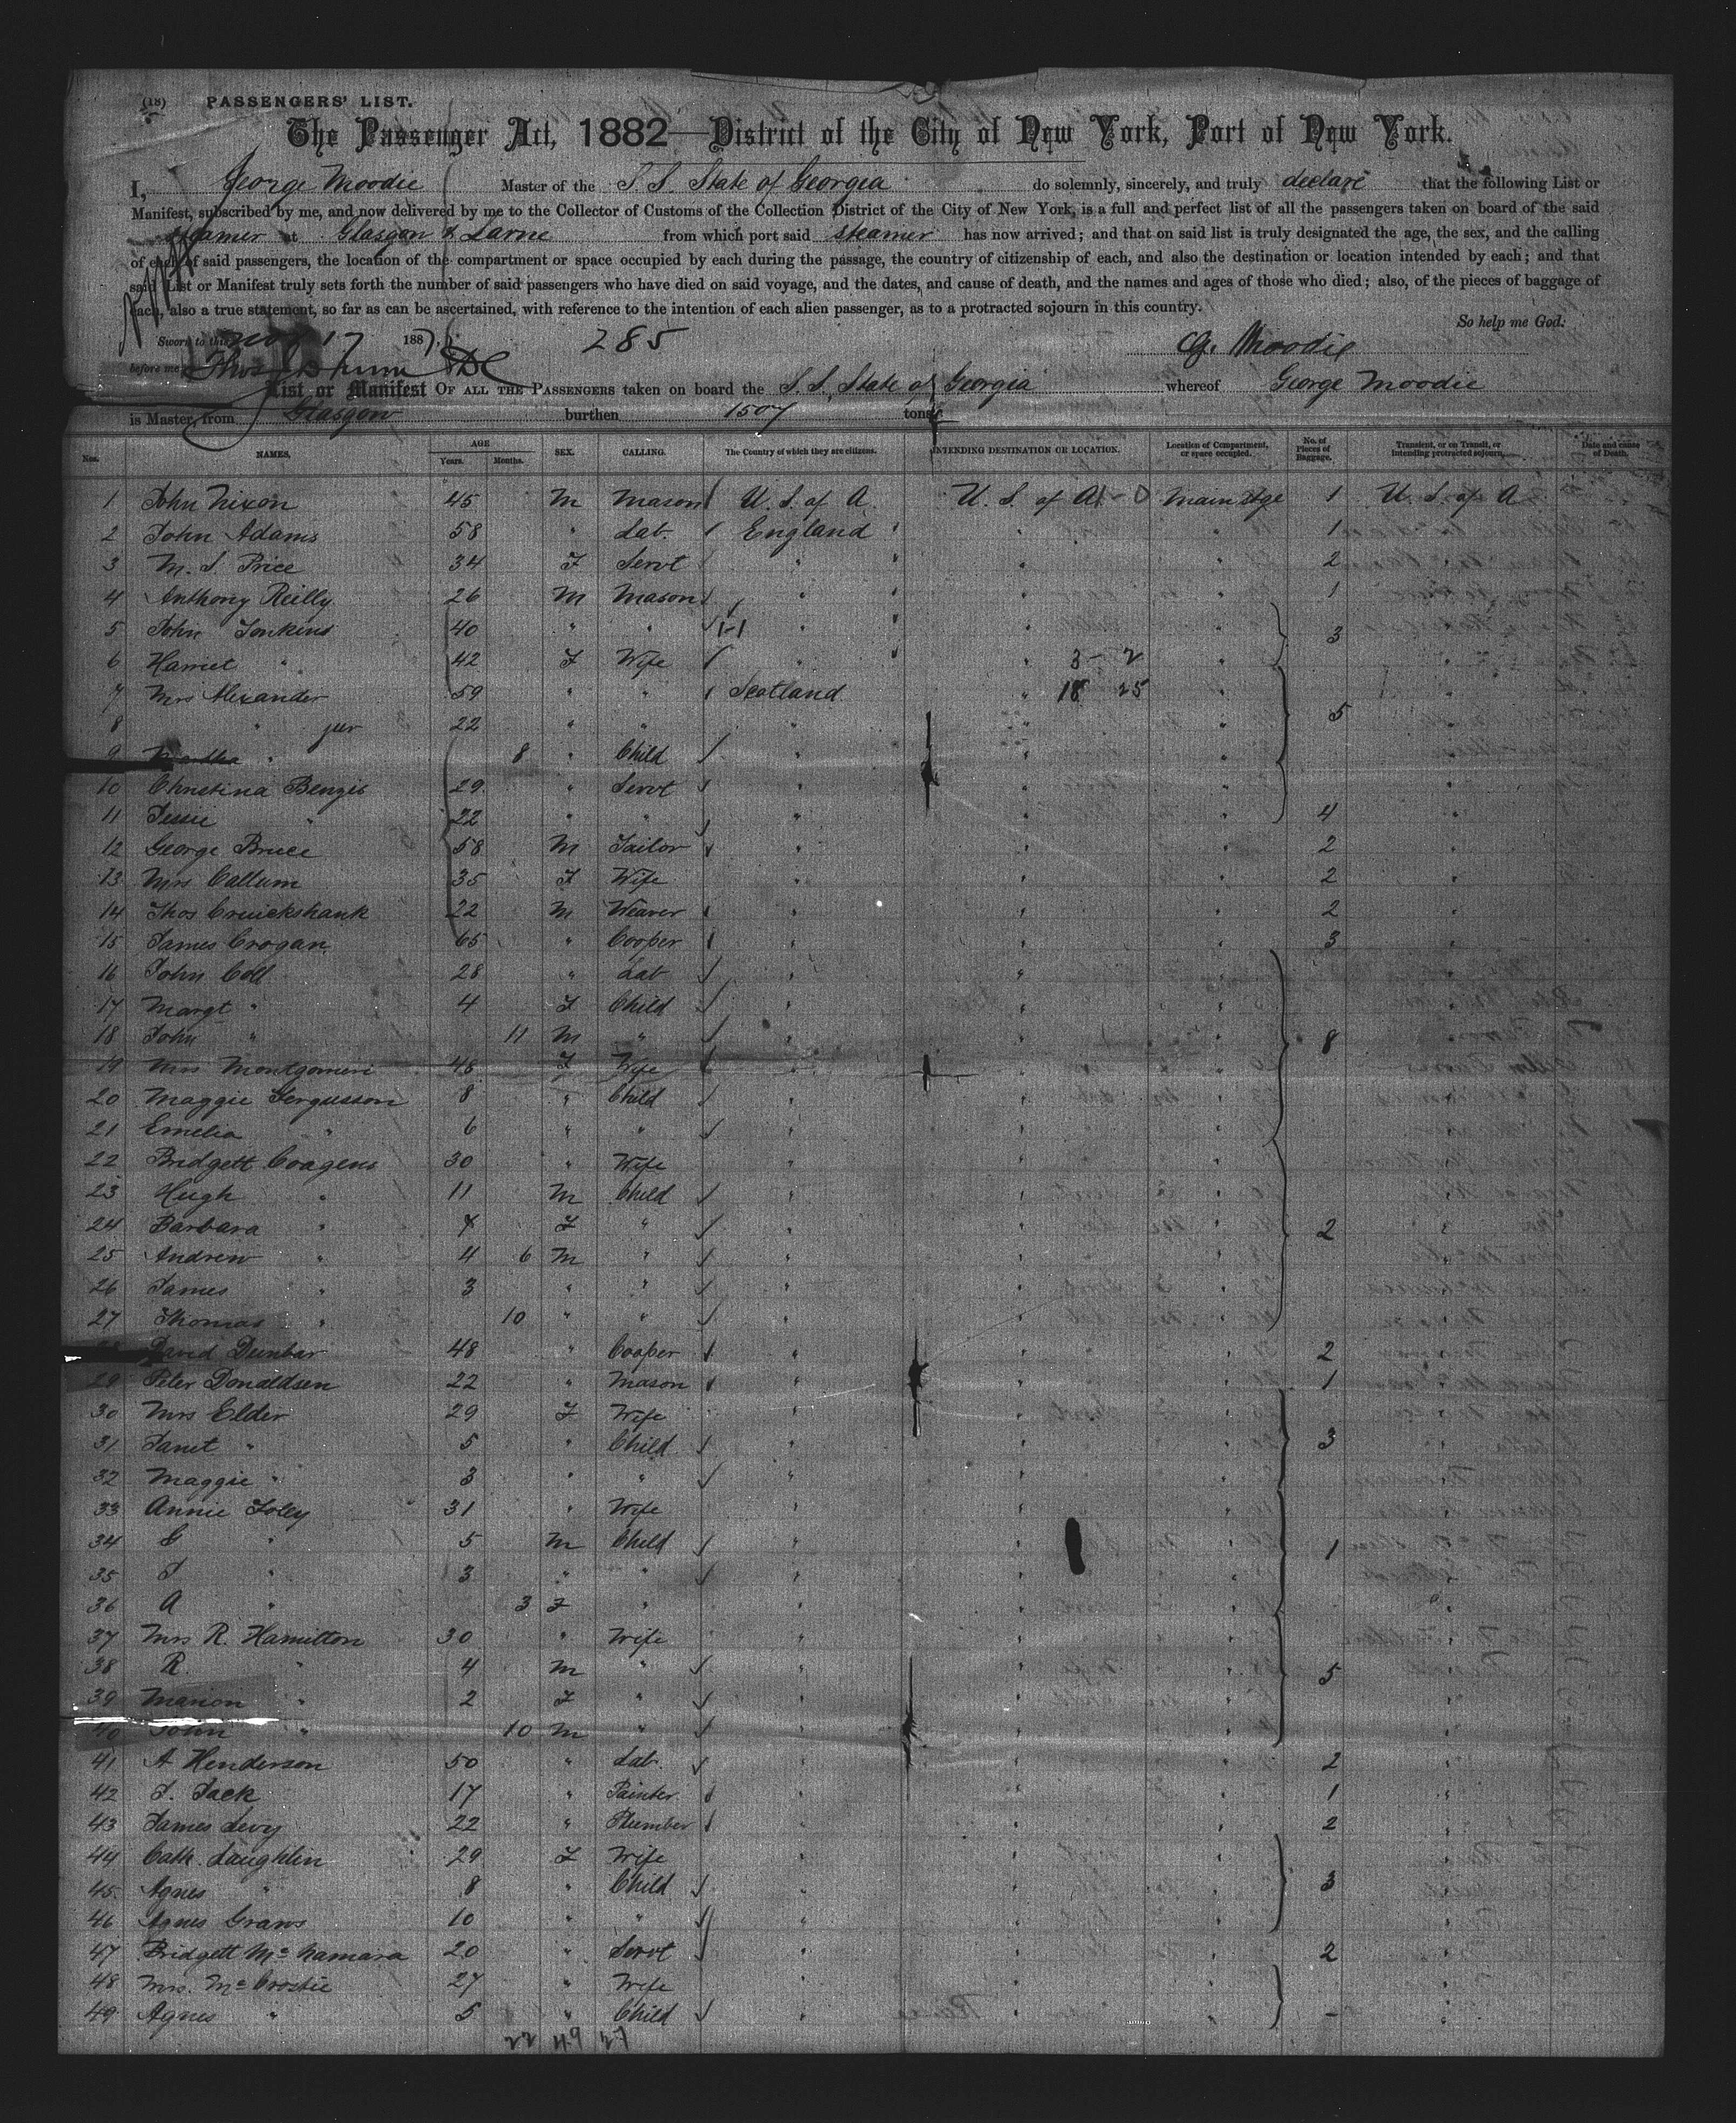 (18) PASSENGERS' LIST.
The Passenger Act, 1882—District of the City of New York, Port of New York.
I, George Moodie Master of the S.S. State of Georgia do solemnly, sincerely, and truly declare that the following List or
Manifest, subscribed by me, and now delivered by me to the Collector of Customs of the Collection District of the City of New York, is a full and perfect list of all the passengers taken on board of the said
steamer at Glasgow & Larne from which port said steamer has now arrived; and that on said list is truly designated the age, the sex, and the calling
of each of said passengers, the location of the compartment or space occupied by each during the passage, the country of citizenship of each, and also the destination or location intended by each; and that
said List or Manifest truly sets forth the number of said passengers who have died on said voyage, and the dates, and cause of death, and the names and ages of those who died; also, of the pieces of baggage of
each, also a true statement, so far as can be ascertained, with reference to the intention of each alien passenger, as to a protracted sojourn in this country.
So help me God.
Sworn to this Nov 17 1887 285 G. Moodie
before me Thos
List or Manifest OF ALL THE PASSENGERS taken on board the S.S. State of Georgia whereof George Moodie
is Master, from Glasgow burthen 1507 tons
Nos. NAMES. AGE Years. Months. SEX. CALLING. The Country of which they are citizens. INTENDING DESTINATION OR LOCATION. Location of Compartment, or space occupied. No. of Pieces of Baggage. Transient, or on Transit, or intending protracted sojourn. Date and cause of Death.
1 John Nixon 45 M Mason U.S. of A. U.S. of A Main Stge 1 U.S. of A
2 John Adams 58 " Lab. England " " 1
3 M. S. Price 34 F Servt " " " 2 "
4 Anthony Reilly 26 M Mason " " " 1 "
5 John Jonkins 40 " " " " " 3
6 Harriet " 42 F Wife " " 3 - 2 " "
7 Mrs Alexander 59 " " Scotland " 18 25 "
8 " jur 22 " " " " " 5 "
9 Martha " 8 " Child " " "
10 Christina Bengis 29 " Servt " " " "
11 Jessie " 22 " " " " " 4 "
12 George Bruce 58 M Tailor " " " 2 "
13 Mrs Callum 35 F Wife " " " 2 "
14 Thos Cruickshank 22 M Weaver " " " 2 "
15 James Crogan 65 " Cooper " " " 3 "
16 John Coll 28 " Lab " " " "
17 Margt " 4 F Child " " " "
18 John " 11 M " " " " 8 "
19 Mrs Montgomeri 48 F Wife " " " "
20 Maggie Fergusson 8 " Child " " " "
21 Emelia " 6 " " " " " "
22 Bridgett Coagens 30 " Wife " " " "
23 Hugh " 11 M Child " " " "
24 Barbara " 7 F " " " " 2 "
25 Andrew " 4 6 M " " " " "
26 James " 3 " " " " " "
27 Thomas " 10 " " " " " "
28 David Dunbar 48 " Cooper " " " 2 "
29 Peter Donaldsen 22 " Mason " " " 1 "
30 Mrs Elder 29 F Wife " " " "
31 Janet " 5 " Child " " " 3 "
32 Maggie " 3 " " " " " "
33 Annie Foley 31 " Wife " " " "
34 G " 5 M Child " " " 1 "
35 J " 3 " " " " " "
36 A " 3 F " " " " "
37 Mrs R. Hamilton 30 " Wife " " " "
38 R. " 4 M " " " " 5 "
39 Marion " 2 F " " " " "
40 John " 10 M " " " " "
41 A Henderson 50 " Lab. " " " 2 "
42 J. Jack 17 " Painter " " " 1 "
43 James Levy 22 " Plumber " " " 2 "
44 Cath. Laughlin 29 F Wife " " " "
45 Agnes " 8 " Child " " " 3 "
46 Agnes Graws 10 " " " " " "
47 Bridgett McNamara 20 " Servt " " " 2 "
48 Mrs. McCrostie 27 " Wife " " " "
49 Agnes " 5 " Child " " " - "
22 49 27